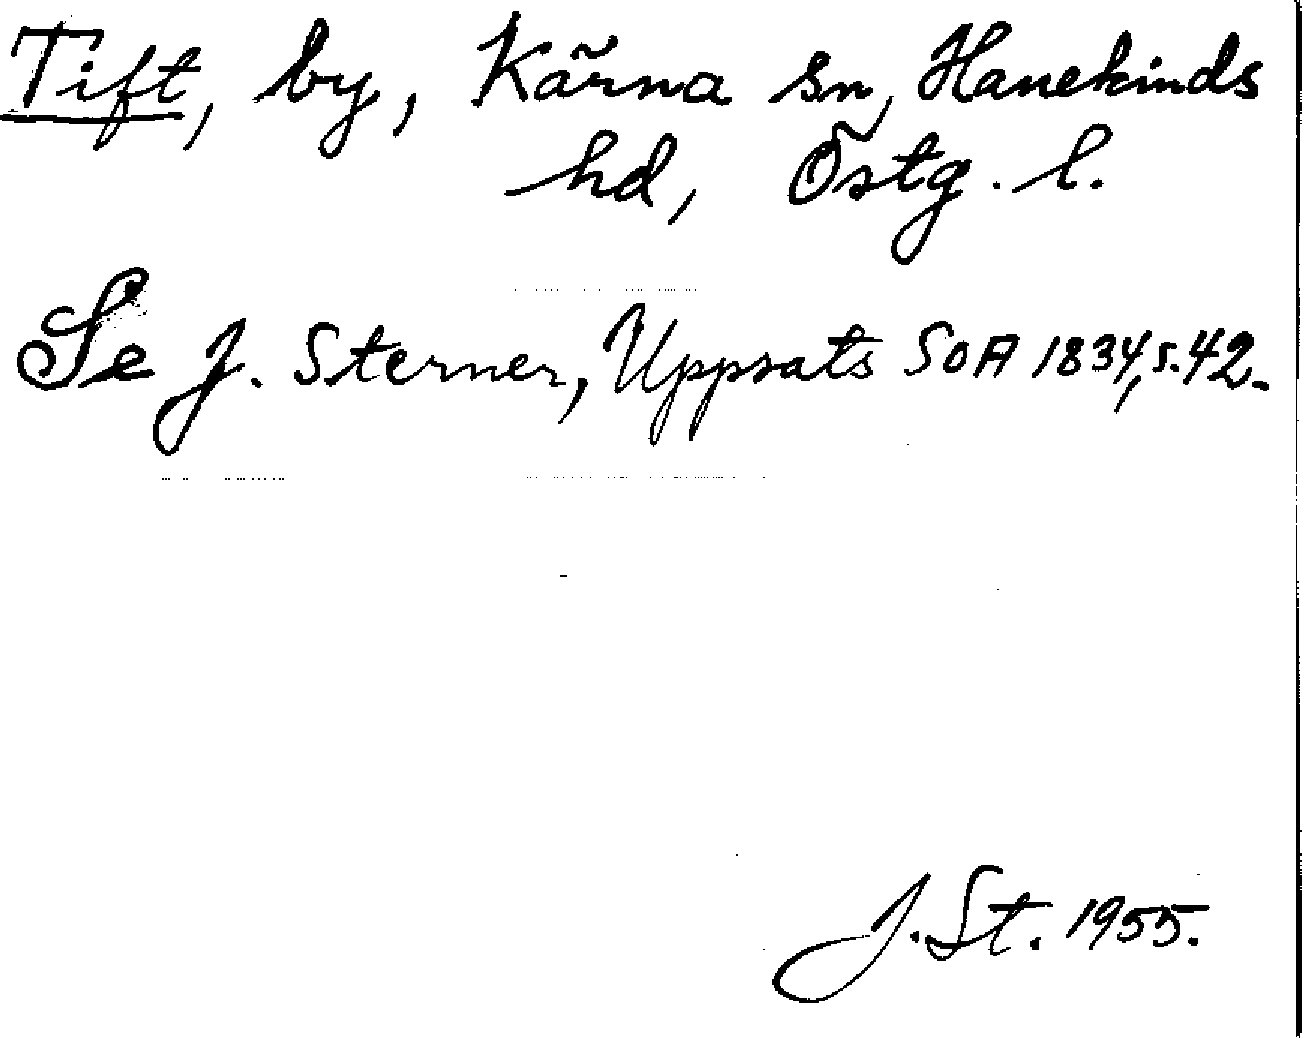 Tift, by, Kärna sn, Hanekinds
hd, Östg. l.
Se J. Sterner, Uppsats SOA 1834, s. 42.
J. St. 1955.